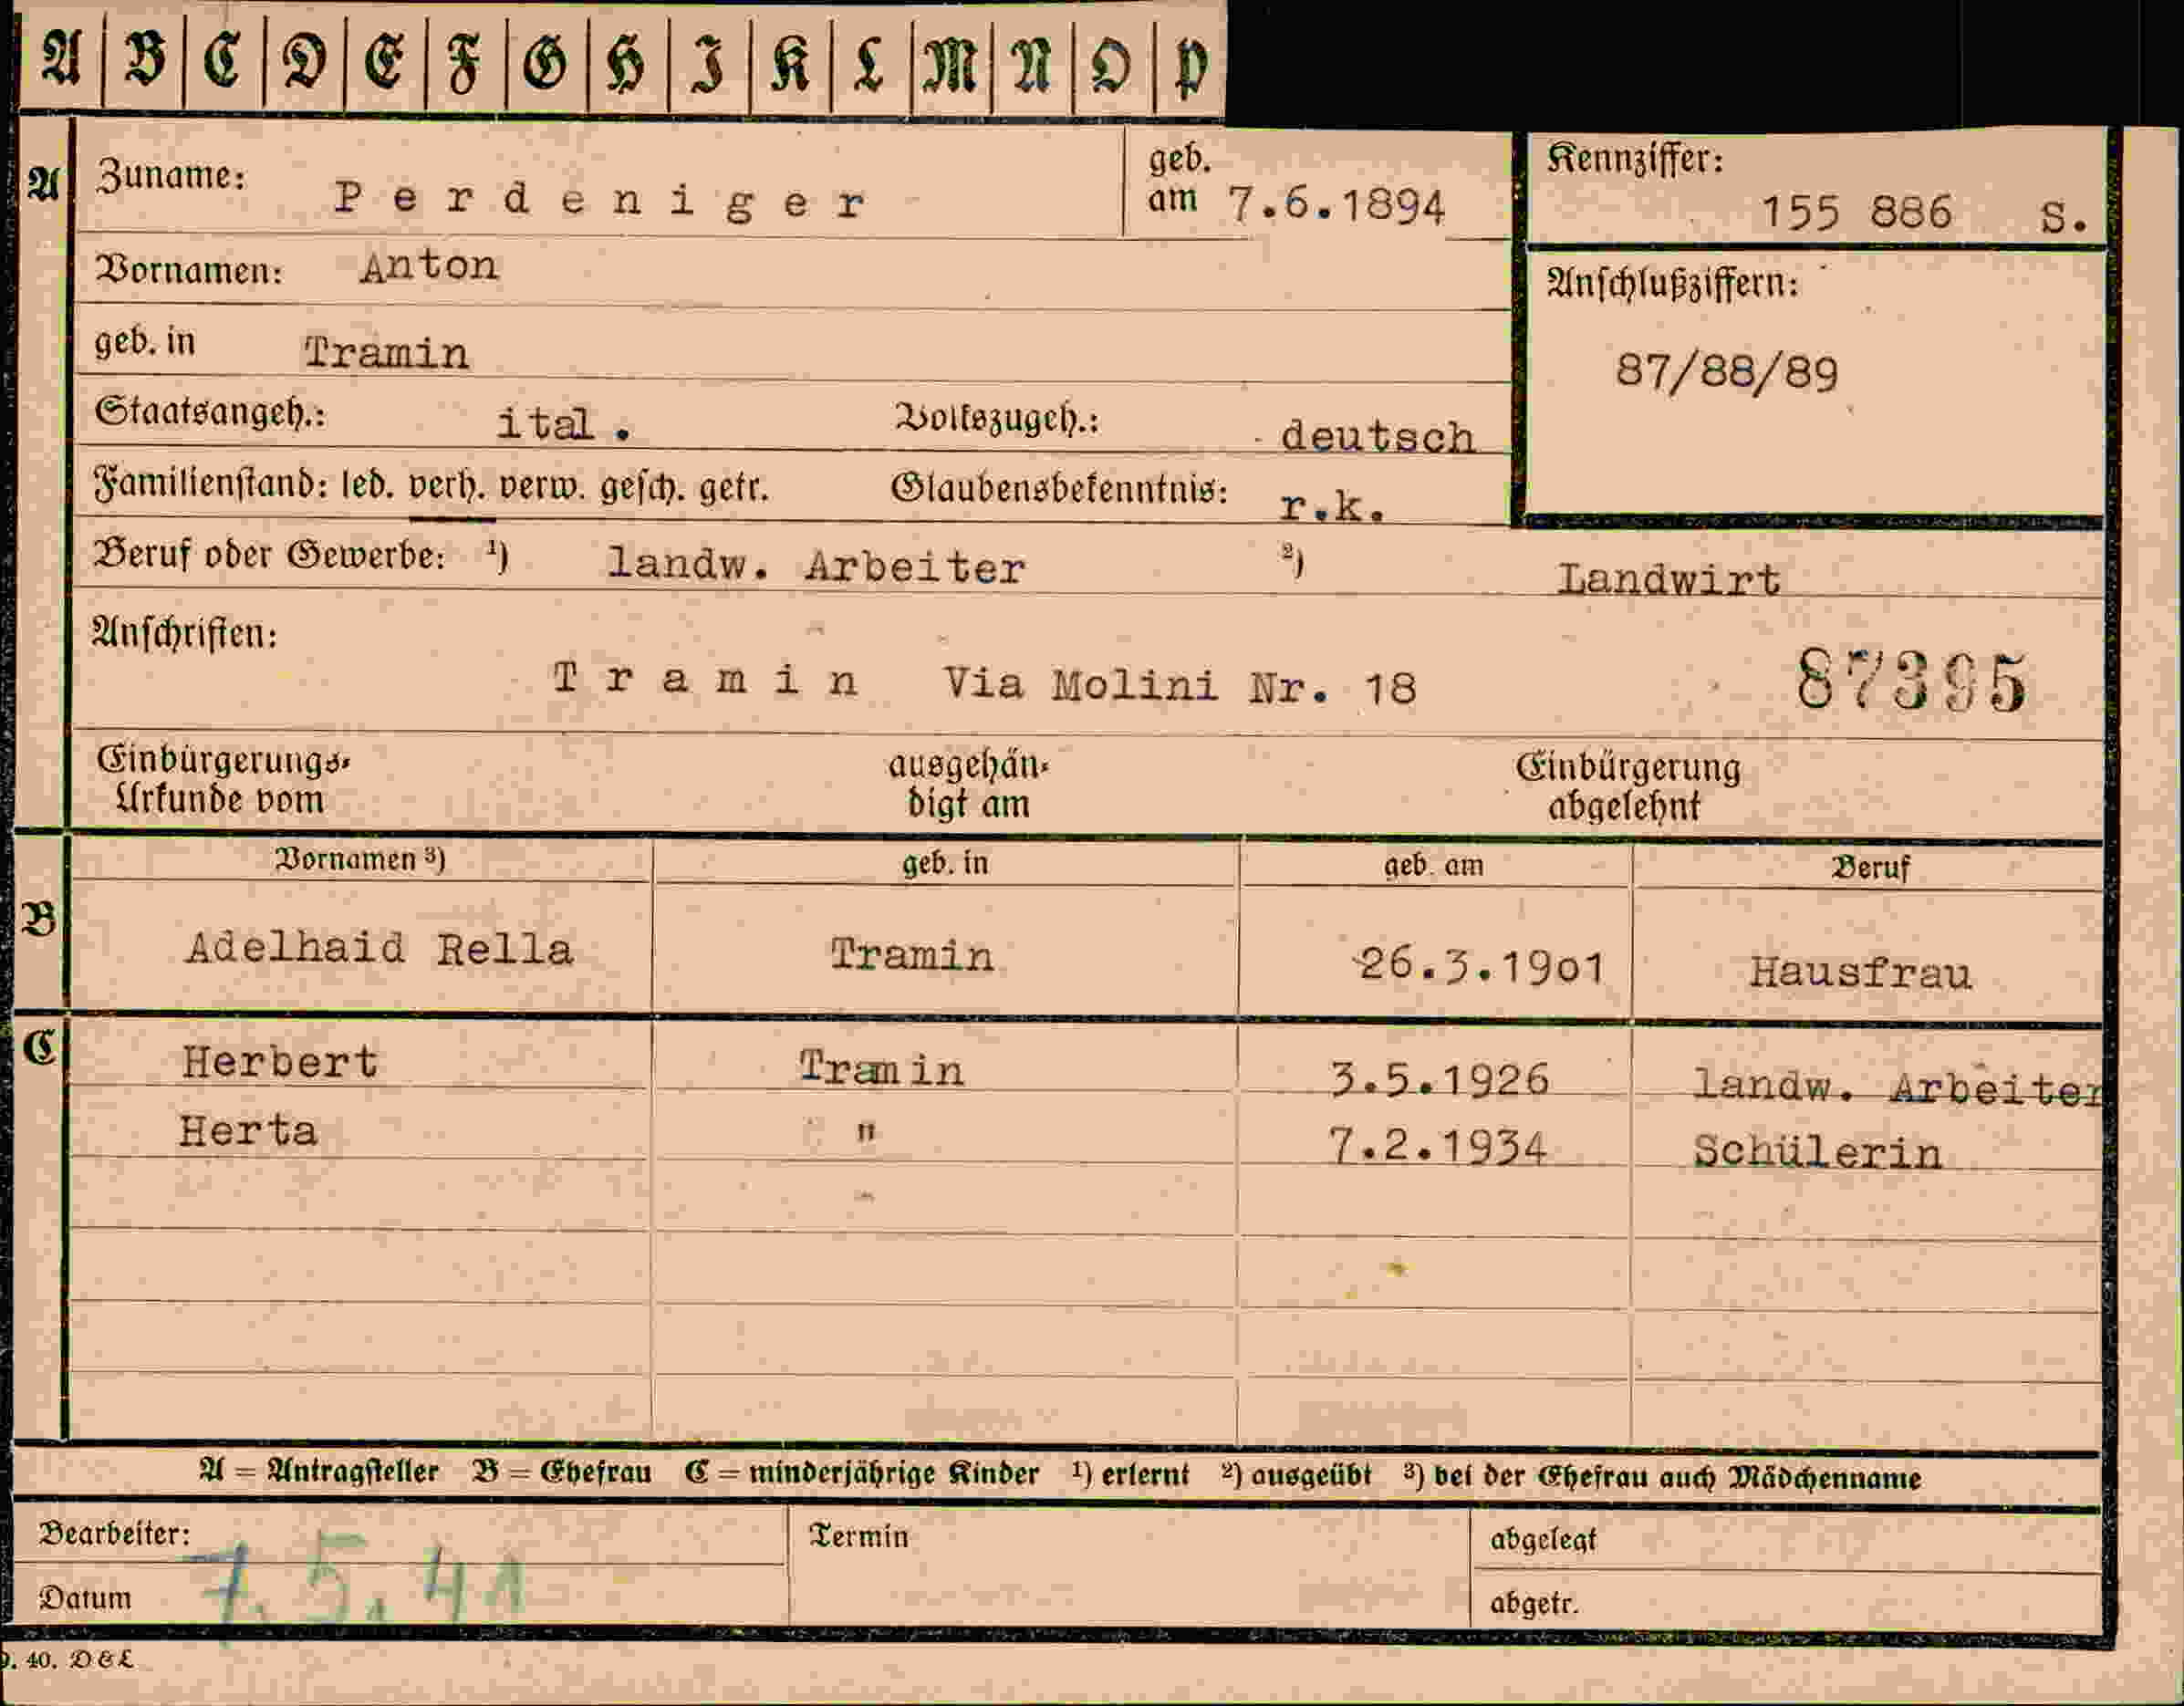 A B C D E F G H I K L M N O P
A Zuname: Perdeniger geb. am 7.6.1894 Kennziffer: 155 886 S.
Vornamen: Anton Anschlußziffern:
geb. in Tramin 87/88/89
Staatsangeh.: ital. Volkszugeh.: deutsch
Familienstand: led. verh. verw. gesch. getr. Glaubensbekenntnis: r.k.
Beruf oder Gewerbe: ¹) landw. Arbeiter ²) Landwirt
Anschriften:
Tramin Via Molini Nr. 18 87395
Einbürgerungs- ausgehän- Einbürgerung
Urkunde vom digt am abgelehnt
Vornamen ³) geb. in geb. am Beruf
B Adelhaid Rella Tramin 26.3.1901 Hausfrau
C Herbert Tramin 3.5.1926 landw. Arbeiter
Herta " 7.2.1934 Schülerin
A = Antragsteller B = Ehefrau C = minderjährige Kinder ¹) erlernt ²) ausgeübt ³) bei der Ehefrau auch Mädchenname
Bearbeiter: Termin abgelegt
Datum 7.5.41 abgetr.
9. 40. D & L